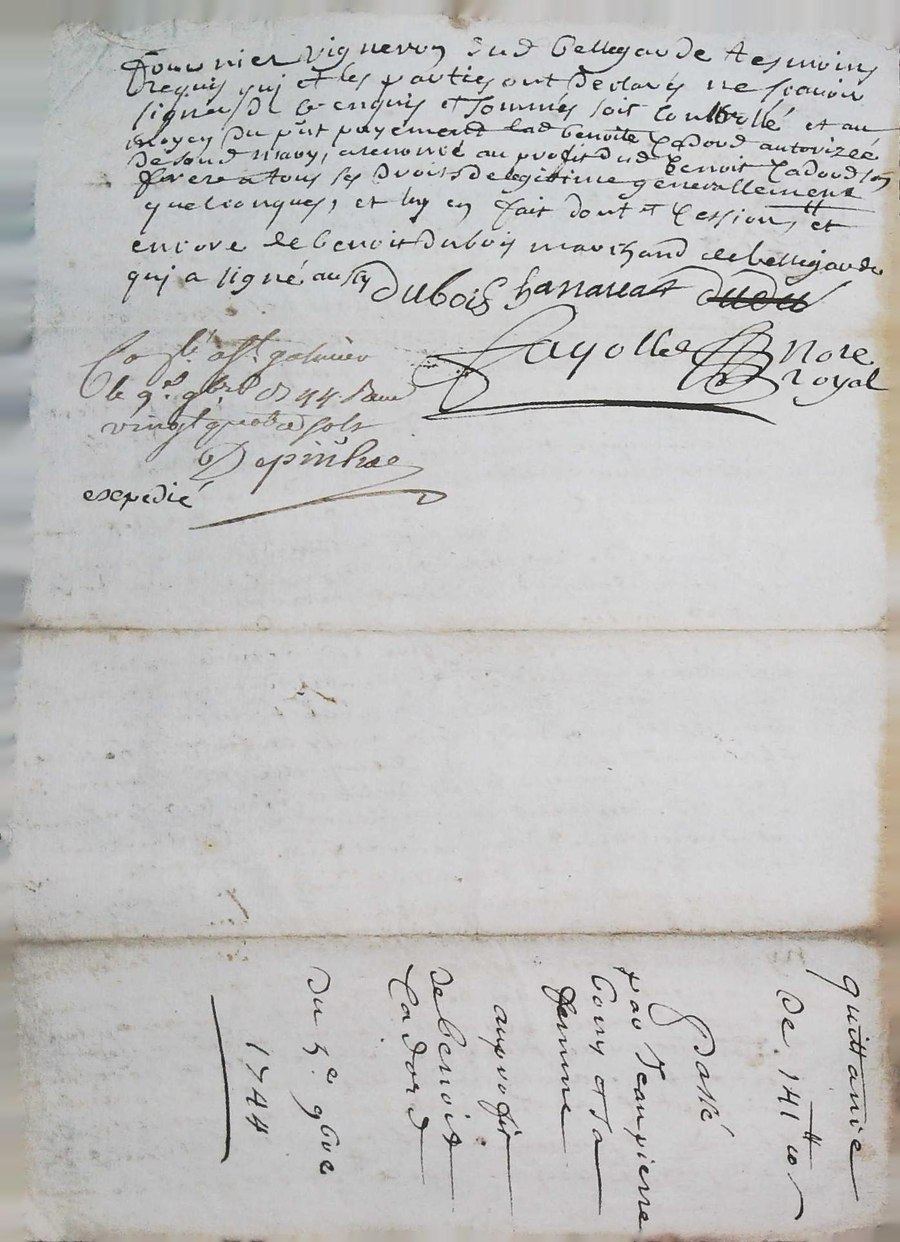 vigneron dud bellegarde tesmoins
requis qui et les parties ont declarés ne scavoir
signer de ce enquis et sommés soit controllé et au
moyen du pnt payement lad benoite Cadord autorizée
de soud mary, a renoncé au profit dud benoit Cadord son
frere a tous ses droits de legitime generallement
quelconques, et luy en fait dont et cession, et
encore de benoit dubois marchand de bellegarde
qui a signé aussy dubois
Fayolle Nore
royal
le 9e 9bre 1744
vingt quatre sols
expedié
quittance
De 141tt
passé
par Jean pierre
et sa
femme
au profit
de benoit
Cadord
du 5e 9bre
1744